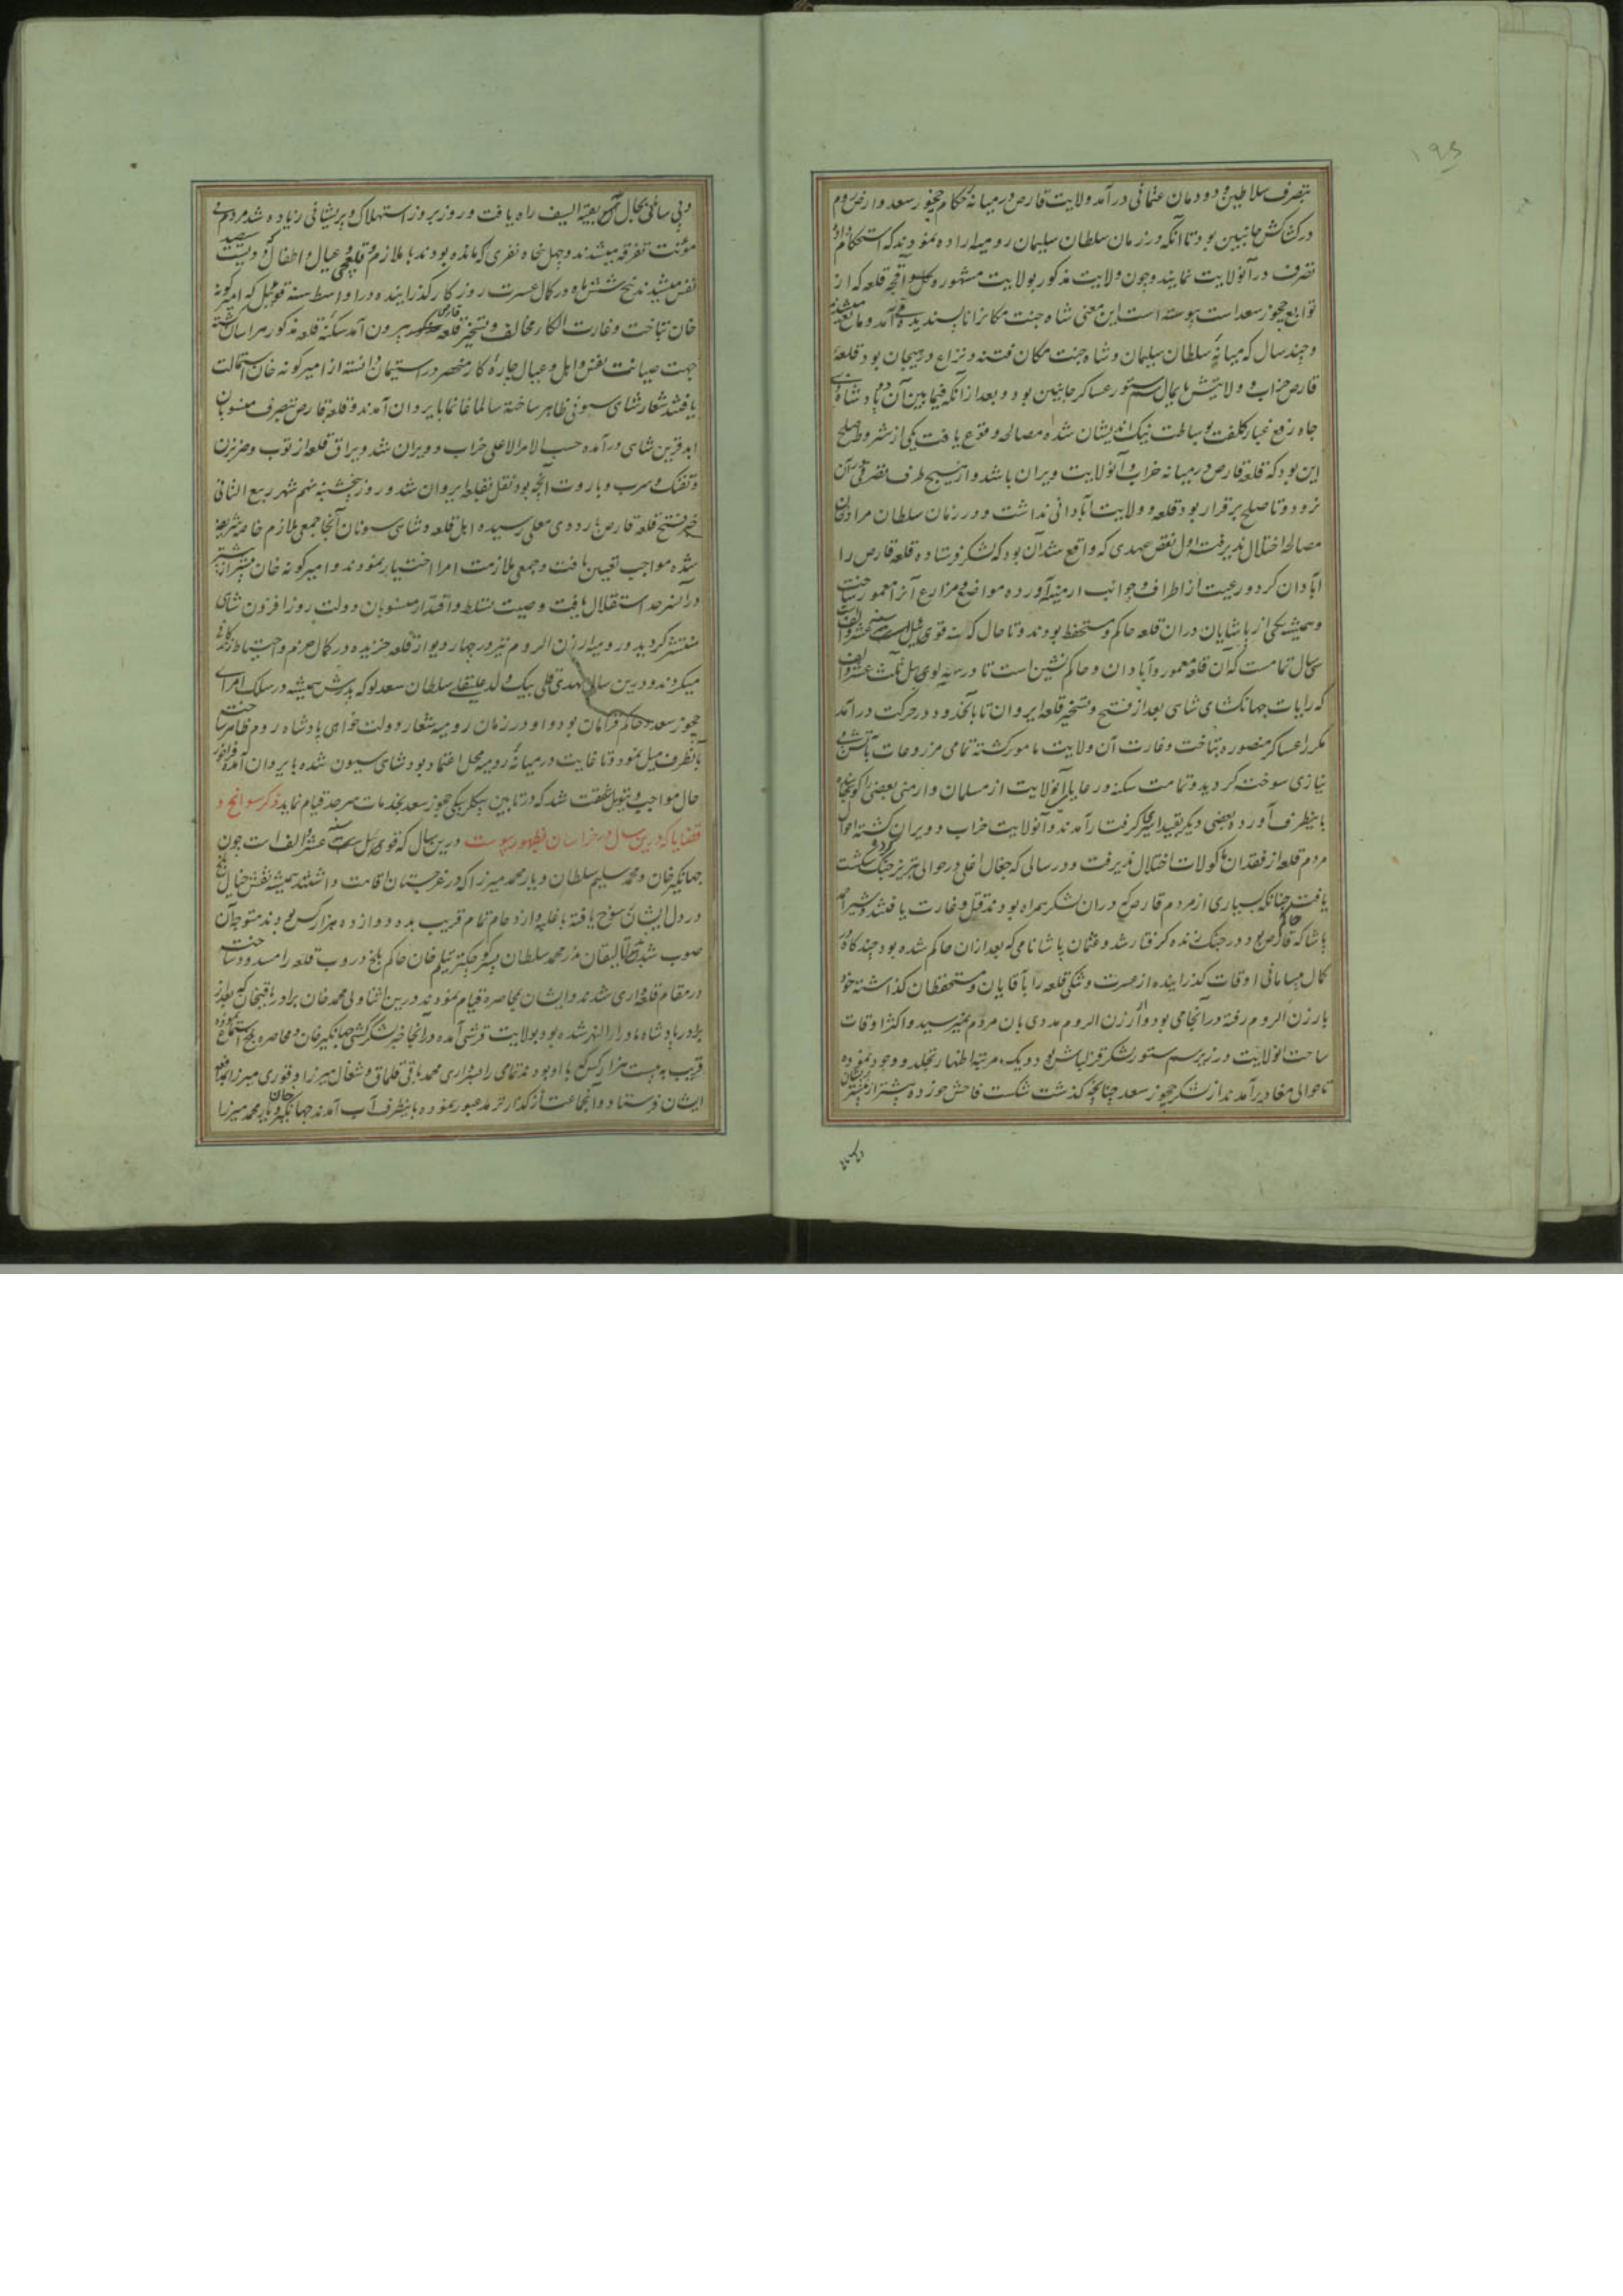 ۱۹۵
بتصرف سلاطین دودمان عثمانی درآمد ولایت قارص در میانه حکام چخور سعد و ارض روم
در کشاکش جانبین بود تا آنکه در زمان سلطان سلیمان رومیه اراده نمودند که استحکام داده
تصرف در آن ولایت نمایند و چون ولایت مذکور بولایت مشهوره آقجه قلعه که از
توابع چخور سعد است پیوسته است این معنی شاه جنت مکان را ناپسندیده می آمد و مانع میشدند
و چند سال که میانه سلطان سلیمان و شاه جنت مکان فتنه و نزاع در هیجان بود قلعه
قارص خراب و ولایتش پایمال سم ستور عساکر جانبین بود و بعد از آنکه فیما بین آن دو پادشاه
جاه رفع غبار کلفت بوساطت نیک اندیشان شده مصالحه وقوع یافت یکی از شروط صلح
این بود که قلعه قارص در میانه خراب و آن ولایت ویران باشد و از هیچ طرف تصرفی در آن
نرود و تا صلح برقرار بود قلعه و ولایت آبادانی نداشت و در زمان سلطان مراد خان
مصالحه اختلال پذیرفت اول نقض عهدی که واقع شد آن بود که لشکر فرستاده قلعه قارص را
آبادان کرد و رعیت از اطراف و جوانب ارمنیه آورده مواضع و مزارع آنرا معمور ساخت
و همیشه یکی از پاشایان در آن قلعه حاکم و مستحفظ بودند و تا حال که سنه قوی ئیل
سی سال تمامست که آن قلعه معمور و آبادان و حاکم نشین است تا در سنه لوی ئیل ثلث عشر و الف
که رایات جهانگشای شاهی بعد از فتح و تسخیر قلعه ایروان تا بآنحدود در حرکت درآمد
مکرر عساکر منصوره بتاخت و غارت آن ولایت مامور گشته تمامی مزروعات بآتش بی
نیازی سوخته گردید و تمامت سکنه و رعایای آن ولایت از مسلمان و ارمنی بعضی را کوچانیده
باینطرف آورده و بعضی دیگر بقید اسر گرفتار آمدند و آن ولایت خراب و ویران گشته احوال
مردم قلعه از فقدان ماکولات اختلال پذیرفت و در سالی که جغال اغلی در حوالی تبریز جنگ کرد و شکست
یافت چنانکه بسیاری از مردم قارص که در آن لشکر همراه بودند قتل و غارت یافتند و شیر احمد
پاشا که حاکم قارص بود در جنگ زنده گرفتار شد و عثمان پاشا نامی که بعد از آن حاکم شده بود چند گاه در
کمال بیسامانی اوقات گذرانیده از عسرت و تنگی قلعه را بآقایان و مستحفظان گذاشته خود
بارزن الروم رفته در آنجا می بود و از ارزن الروم مددی بآن مردم نمیرسید و اکثر اوقات
ساحت آن ولایت در زیر سم ستور لشکر قزلباش بود و یک مرتبه اظهار تجلد و وجود نموده
تا حوالی مغادبر آمدند از لشکر چخور سعد چنانچه گذشت شکست فاحش خورده بیشتر از پیشتر پریشان
و بی سامانی بحال آن بقیة السیف راه یافت و روز بروز استهلاک و پریشانی زیاده شد مردم بی
مؤنت تفرقه میشدند و چهل پنجاه نفری که مانده بودند با ملازم و قلعچی و عیال و اطفال دویست سیصد
نفس میشدند پنج شش ماه در کمال عسرت روزگار گذرانیده در اواسط سنه قوی ئیل که امیر گونه
خان بتاخت و غارت الکاء مخالف و تسخیر قلعه قارص بیرون آمد سکنه قلعه مذکور هراسان گشته
جهت صیانت نفس و اهل و عیال چاره کار منحصر در استیمان دانسته از امیر گونه خان استمالت
یافتند شعار شاهی سیونی ظاهر ساخته سالما غانما بایروان آمدند و قلعه قارص بتصرف منسوبان
ابد قرین شاهی درآمده حسب الامر الاعلی خراب و ویران شد و یراق قلعه از توپ و ضربزن
و تفنگ و سرب و باروت آنچه بود نقل بقلعه ایروان شد و روز پنجشنبه نهم شهر ربیع الثانی
خبر فتح قلعه قارص باردوی معلی رسیده اهل قلعه و شاهی سیونان آنجا جمعی ملازم خاصه شریفه
شده مواجب تعیین یافت و جمعی ملازمت امرا اختیار نمودند و امیر گونه خان بیشتر از پیشتر
در آن سرحد استقلال یافت و صیت تسلط و اقتدار منسوبان دولت روز افزون شاهی
منتشر گردید و رومیه ارزن الروم نیز در چهار دیوار قلعه خزیده در کمال حزم و احتیاط زندگانی
میکردند و درین سال مهدی قلی بیک ولد علیقلی سلطان سعدلو که پدرش همیشه در سلک امرای
چخور سعد حاکم بود و او در زمان رومیه شعار دولت خواهی پادشاه روم ظاهر ساخت
بآنطرف میل نمود و تا غایت در میانه رومیه محل اعتماد بود شاهی سیون شده بایروان آمده فراخور
حال مواجب و تیول شفقت شد که در تابین بیگلربیگی چخور سعد بخدمات سرحد قیام نماید ذکر سوانح و
قضایا که درین سال در خراسان بظهور پیوست درین سال که قوی ئیل سنه ست عشر و الف است چون
جهانگیر خان و محمد سلیم سلطان و یار محمد میرزا که در غرجستان اقامت داشتند همیشه نقش خیال بلخ
در دل ایشان رسوخ یافته با غلبه و ازدحام تمام قریب بده دوازده هزار کس بودند متوجه آن
صوب شدند محمد سلطان پسر خان حاکم بلخ دروب قلعه را مسدود ساخت
در مقام قلعه داری شدند و ایشان بمحاصره قیام نمودند درین اثنا ولی محمد خان برادر باقیخان که بعد از
برادر پادشاه ماوراءالنهر شده بود بولایت قرشی آمده در آنجا خبر لشکر کشی جهانگیر خان و محاصره بلخ استماع نموده
قریب به بیست هزار کس که با او بودند تمامی را بسرداری محمد باقی قلماق و شغال میرزا و قوری میرزا بدفع
ایشان فرستاد و آن جماعت از گذار ترمد عبور نموده باینطرف آب آمدند جهانگیر خان و یار محمد میرزا